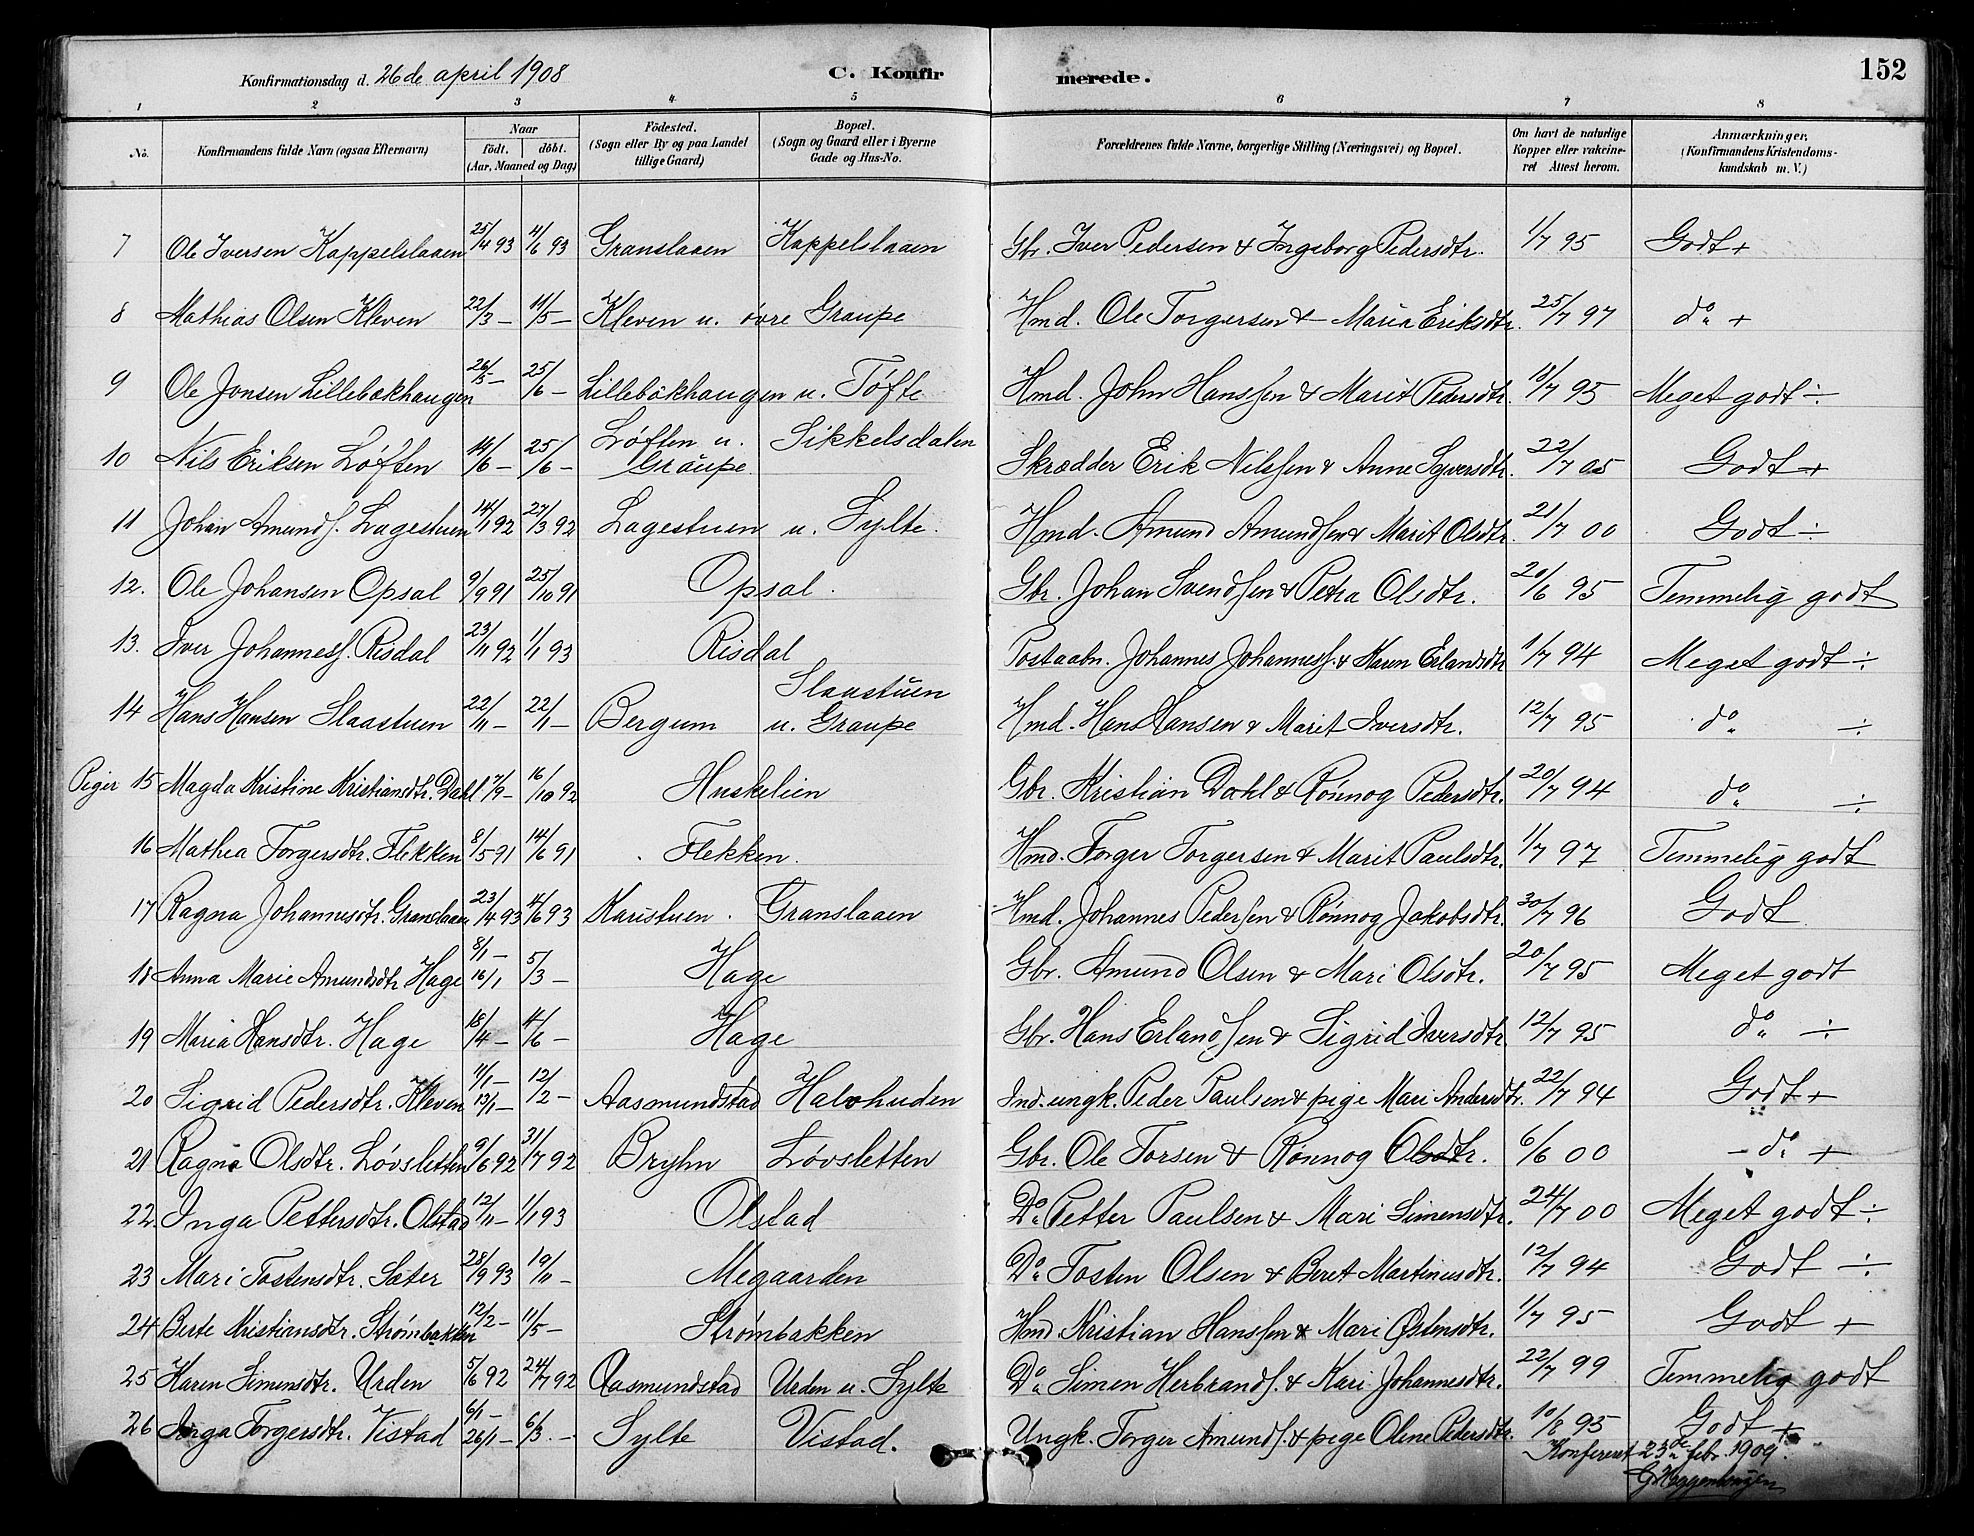 Konfirmationsdag d. 26de april 1908 C. Konfirmerede. 152
1 2 3 4 5 6 7 8
No. Konfirmandens fulde Navn (ogsaa Efternavn) Naar födt. döbt. (Aar, Maaned og Dag) Födested. (Sogn eller By og paa Landet tillige Gaard) Bopæl. (Sogn og Gaard eller i Byerne Gade og Hus-No. Forældrenes fulde Navne, borgerlige Stilling (Næringsvei) og Bopæl. Om havt de naturlige Kopper eller vakcineret Attest herom. Anmærkninger. (Konfirmandens Kristendomskundskab m. V.)
7 Ole Iversen Kappelslaaen 25/4 93 4/6 93 Granslaaen Kappelslaaen Gbr. Iver Pedersen & Ingeborg Pedersdtr. 1/7 95 Godt +
8 Mathias Olsen Kleven 22/3 – 11/5 – Kleven u. øvre Graupe Hmd. Ole Torgersen & Maria Eriksdtr. 25/7 97 do +
9 Ole Jonsen Lillebækhaugen 26/5 – 25/6 – Lillebækhaugen u. Tøfte Hmd. John Hanssen & Marit Pedersdtr. 18/7 95 Meget godt ÷
10 Nils Eriksen Løften 14/6 – 25/6 – Løften u. Graupe Sikkelsdalen Skrædder Erik Nilssen & Anne Syversdtr. 22/7 05 Godt +
11 Johan Amunds. Lagestuen 14/1 92 27/3 92 Lagestuen u. Sylte. Hmd. Amund Amundsen & Marit Olsdtr. 21/7 00 Godt ÷
12. Ole Johansen Opsal 9/9 91 25/10 91 Opsal. Gbr. Johan Svendsen & Petra Olsdtr. 20/6 95 Temmelig godt
13. Iver Johanness. Risdal 23/11 92 1/1 93 Risdal Postaabn. Johannes Johanness. & Karen Erlandsdtr 1/7 94 Meget godt ÷
14 Hans Hansen Slaastuen 22/11 – 22/1 – Bergum Slaastuen u. Graupe Hmd. Hans Hansen & Marit Iversdtr. 12/7 95 do ÷
Piger 15 Magda Kristine Kristiansdtr. Dahl 7/9 – 16/10 92 Huskelien Gbr. Kristian Dahl & Rönnog Pedersdtr. 20/7 94 do ÷
16 Mathea Torgersdtr. Flekken 8/5 91 14/6 91 Flekken. Hmd. Torger Torgersen & Marit Paulsdtr. 1/7 97 Temmelig godt
17 Ragna Johannesdtr. Granslaaen 23/4 93 4/6 93 Karistuen. Granslaaen Hmd. Johannes Pedersen & Rönnog Jakobsdtr. 30/7 96 Godt
18 Anna Marie Amundsdtr Hage 8/1 – 16/1 5/3 – Hage Gbr. Amund Olsen & Mari Olsdtr. 20/7 95 Meget godt
19 Maria Hansdtr. Hage 18/4 – 4/6 – Hage Gbr. Hans Erlandsen & Sigrid Iversdtr 12/7 95 do ÷
20 Sigrid Pedersdtr. Kleven 11/1 – 13/1 – 12/2 – Aasmundstad Halvhuden Ind. ungk. Peder Paulsen & pige Mari Andersdtr. 22/7 94 Godt +
21 Ragna Olsdtr. Løvsletten 9/6 92 31/7 92 Bryhn Løvsletten Gbr. Ole Torsen & Rönnog Olsdtr. 6/6 00 – do +
22. Inga Pettersdtr. Olstad 12/11 – 1/1 93 Olstad Do Petter Paulsen & Mari Simensdtr. 24/7 00 Meget godt ÷
23 Mari Tostensdtr. Sæter 28/9 93 19/11 – Megaarden Do Tosten Olsen & Beret Martinusdtr. 12/7 94 Godt ÷
24 Berte Kristiansdtr. Strømbakken 12/2 – 11/5 – Strømbakken Hmd Kristian Hanssen & Mari Østensdtr. 1/7 95 Godt +
25 Karen Simensdtr. Urden 5/6 92 24/7 92 Aasmundstad Urden u. Sylte Do Simen Herbrands. & Kari Johannesdtr. 22/7 99 Temmelig godt
26 Inga Torgersdtr. Vistad 6/1 – 26/1 – 6/3 – Sylte Vistad. Ungk. Torger Amunds. & pige Olene Pedersdtr. 10/8 95 Godt +
Konfereret 23de febr. 1909.
G. Heggenhougen